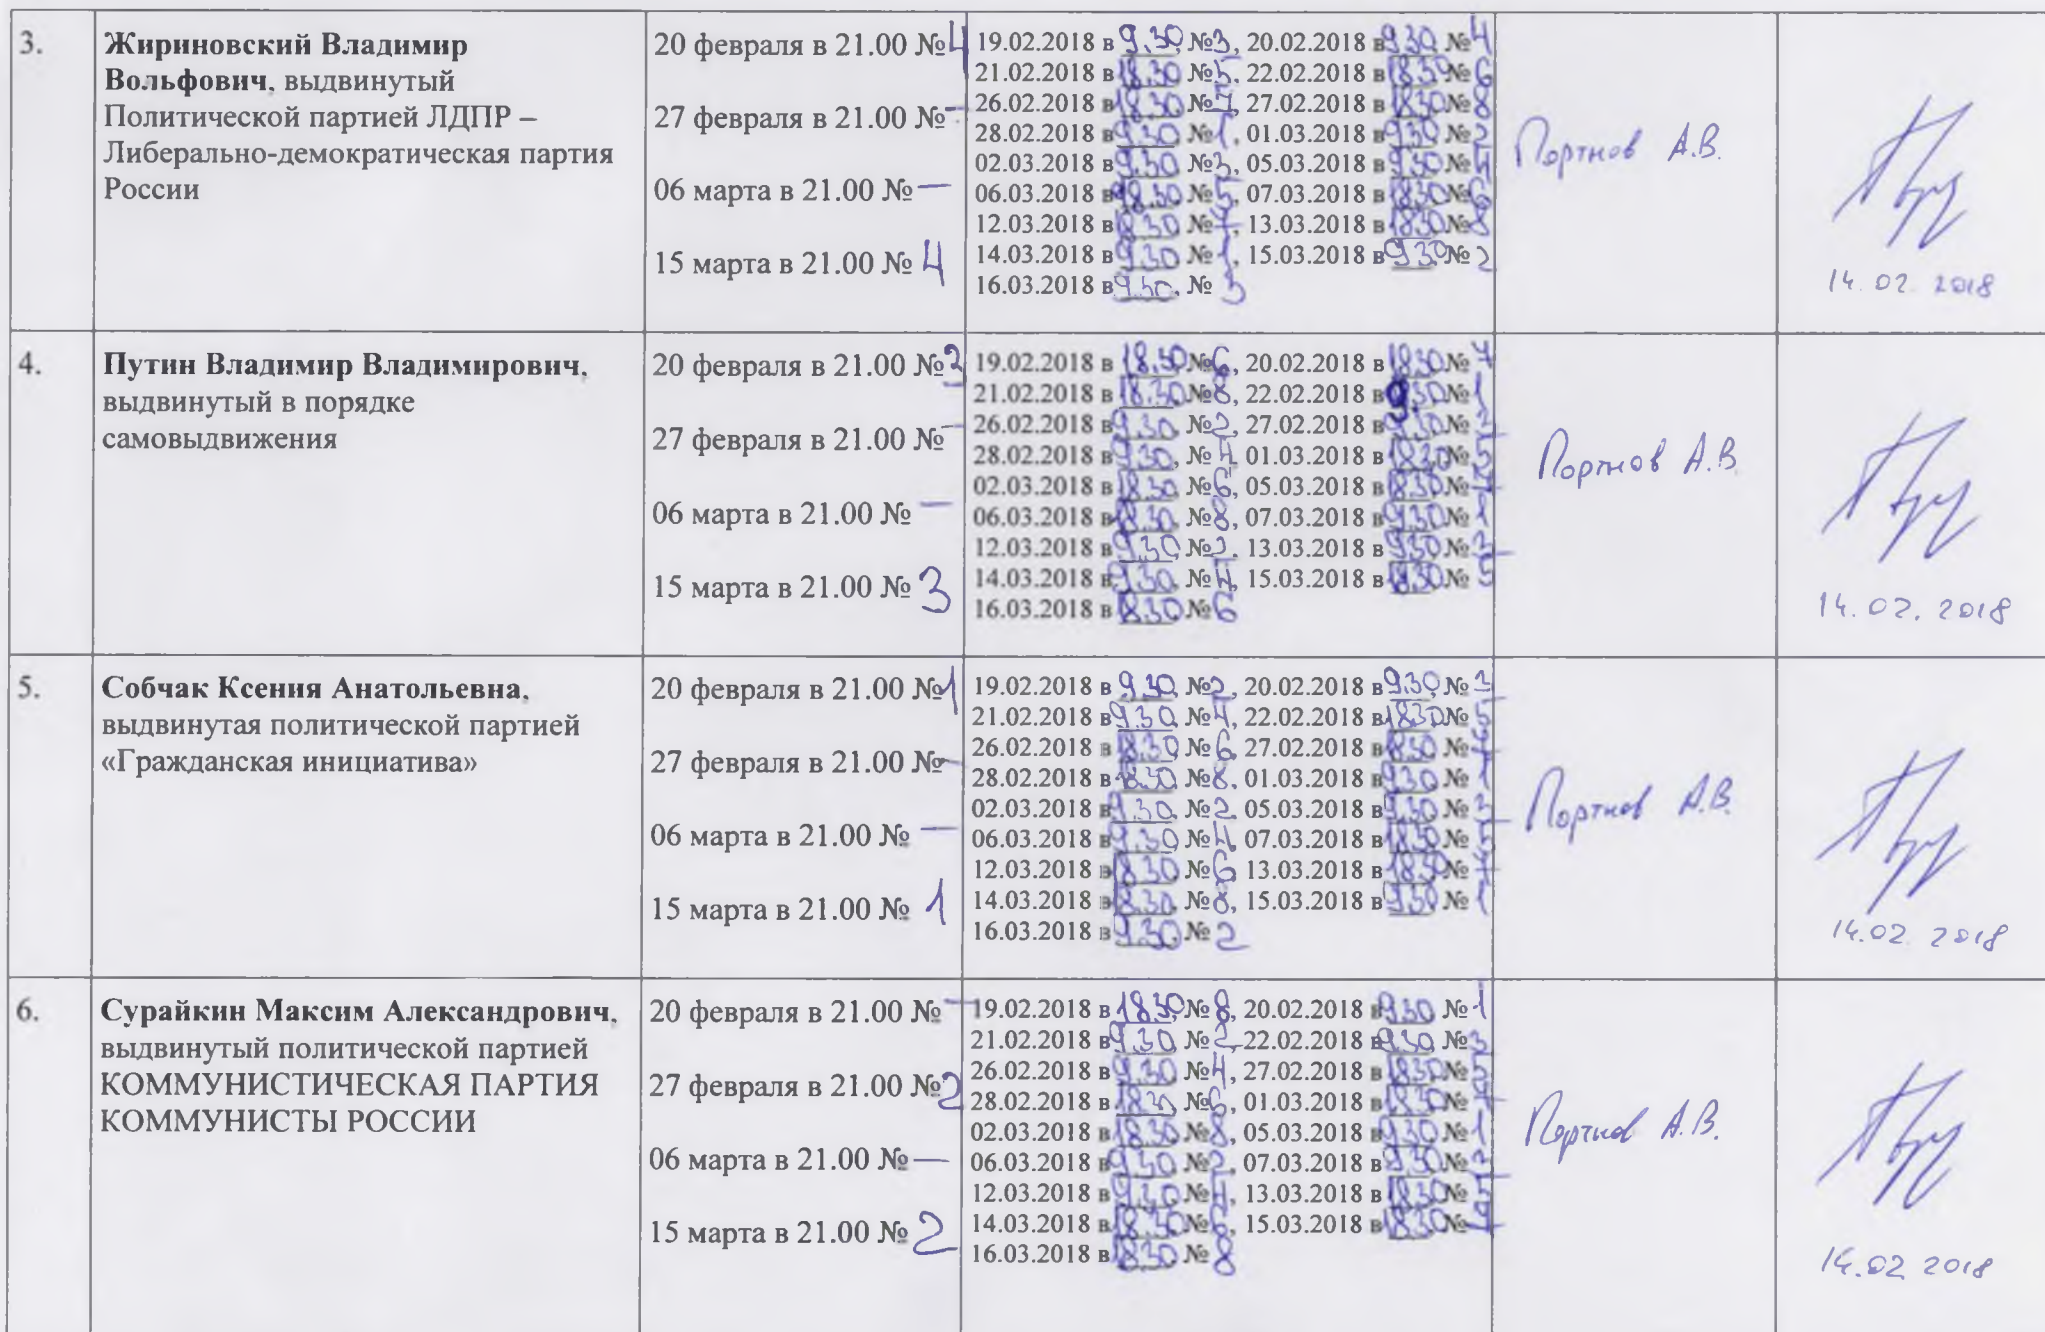 3.
Жириновский Владимир
Вольфович, выдвинутый
Политической партией ЛДПР –
Либерально-демократическая партия
России
20 февраля в 21.00 №4
27 февраля в 21.00 № —
06 марта в 21.00 № —
15 марта в 21.00 № 4
19.02.2018 в 9.30, №3, 20.02.2018 в 9.30, №4
21.02.2018 в 18.30 №5, 22.02.2018 в 18.30 №6
26.02.2018 в 18.30, №7, 27.02.2018 в 18.30 №8
28.02.2018 в 9.30 №1, 01.03.2018 в 9.30 №2
02.03.2018 в 9.30 №3, 05.03.2018 в 9.30 №4
06.03.2018 в 18.30 №5, 07.03.2018 в 18.30 №6
12.03.2018 в 18.30 №7, 13.03.2018 в 18.30 №8
14.03.2018 в 9.30 №1, 15.03.2018 в 9.30 №2
16.03.2018 в 9.30, № 3
Портнов А.В.
14.02.2018
4.
Путин Владимир Владимирович,
выдвинутый в порядке
самовыдвижения
20 февраля в 21.00 №2
27 февраля в 21.00 № —
06 марта в 21.00 № —
15 марта в 21.00 № 3
19.02.2018 в 18.30 №6, 20.02.2018 в 18.30 №7
21.02.2018 в 18.30 №8, 22.02.2018 в 9.30 №1
26.02.2018 в 9.30, №2, 27.02.2018 в 9.30 №3
28.02.2018 в 9.30, №4, 01.03.2018 в 18.30, №5
02.03.2018 в 18.30, №6, 05.03.2018 в 18.30 №7
06.03.2018 в 18.30, №8, 07.03.2018 в 9.30 №1
12.03.2018 в 9.30, №2, 13.03.2018 в 9.30 №3
14.03.2018 в 9.30, №4, 15.03.2018 в 18.30 №5
16.03.2018 в 18.30 №6
Портнов А.В.
14.02.2018
5.
Собчак Ксения Анатольевна,
выдвинутая политической партией
«Гражданская инициатива»
20 февраля в 21.00 №1
27 февраля в 21.00 № —
06 марта в 21.00 № —
15 марта в 21.00 № 1
19.02.2018 в 9.30, №2, 20.02.2018 в 9.30, №3
21.02.2018 в 9.30, №4, 22.02.2018 в 18.30 №5
26.02.2018 в 18.30, №6, 27.02.2018 в 18.30 №7
28.02.2018 в 18.30, №8, 01.03.2018 в 9.30 №1
02.03.2018 в 9.30, №2, 05.03.2018 в 9.30 №3
06.03.2018 в 9.30 №4, 07.03.2018 в 18.30 №5
12.03.2018 в 18.30, №6, 13.03.2018 в 18.30 №7
14.03.2018 в 18.30, №8, 15.03.2018 в 9.30, №1
16.03.2018 в 9.30, №2
Портнов А.В.
14.02.2018
6.
Сурайкин Максим Александрович,
выдвинутый политической партией
КОММУНИСТИЧЕСКАЯ ПАРТИЯ
КОММУНИСТЫ РОССИИ
20 февраля в 21.00 № —
27 февраля в 21.00 №2
06 марта в 21.00 № —
15 марта в 21.00 № 2
19.02.2018 в 18.30, №8, 20.02.2018 в 9.30 №1
21.02.2018 в 9.30, №2, 22.02.2018 в 9.30, №3
26.02.2018 в 9.30 №4, 27.02.2018 в 18.30 №5
28.02.2018 в 18.30, №6, 01.03.2018 в 18.30 №7
02.03.2018 в 18.30, №8, 05.03.2018 в 9.30 №1
06.03.2018 в 9.30 №2, 07.03.2018 в 9.30 №3
12.03.2018 в 9.30 №4, 13.03.2018 в 18.30 №5
14.03.2018 в 18.30 №6, 15.03.2018 в 18.30 №7
16.03.2018 в 18.30 № 8
Портнов А.В.
14.02 2018